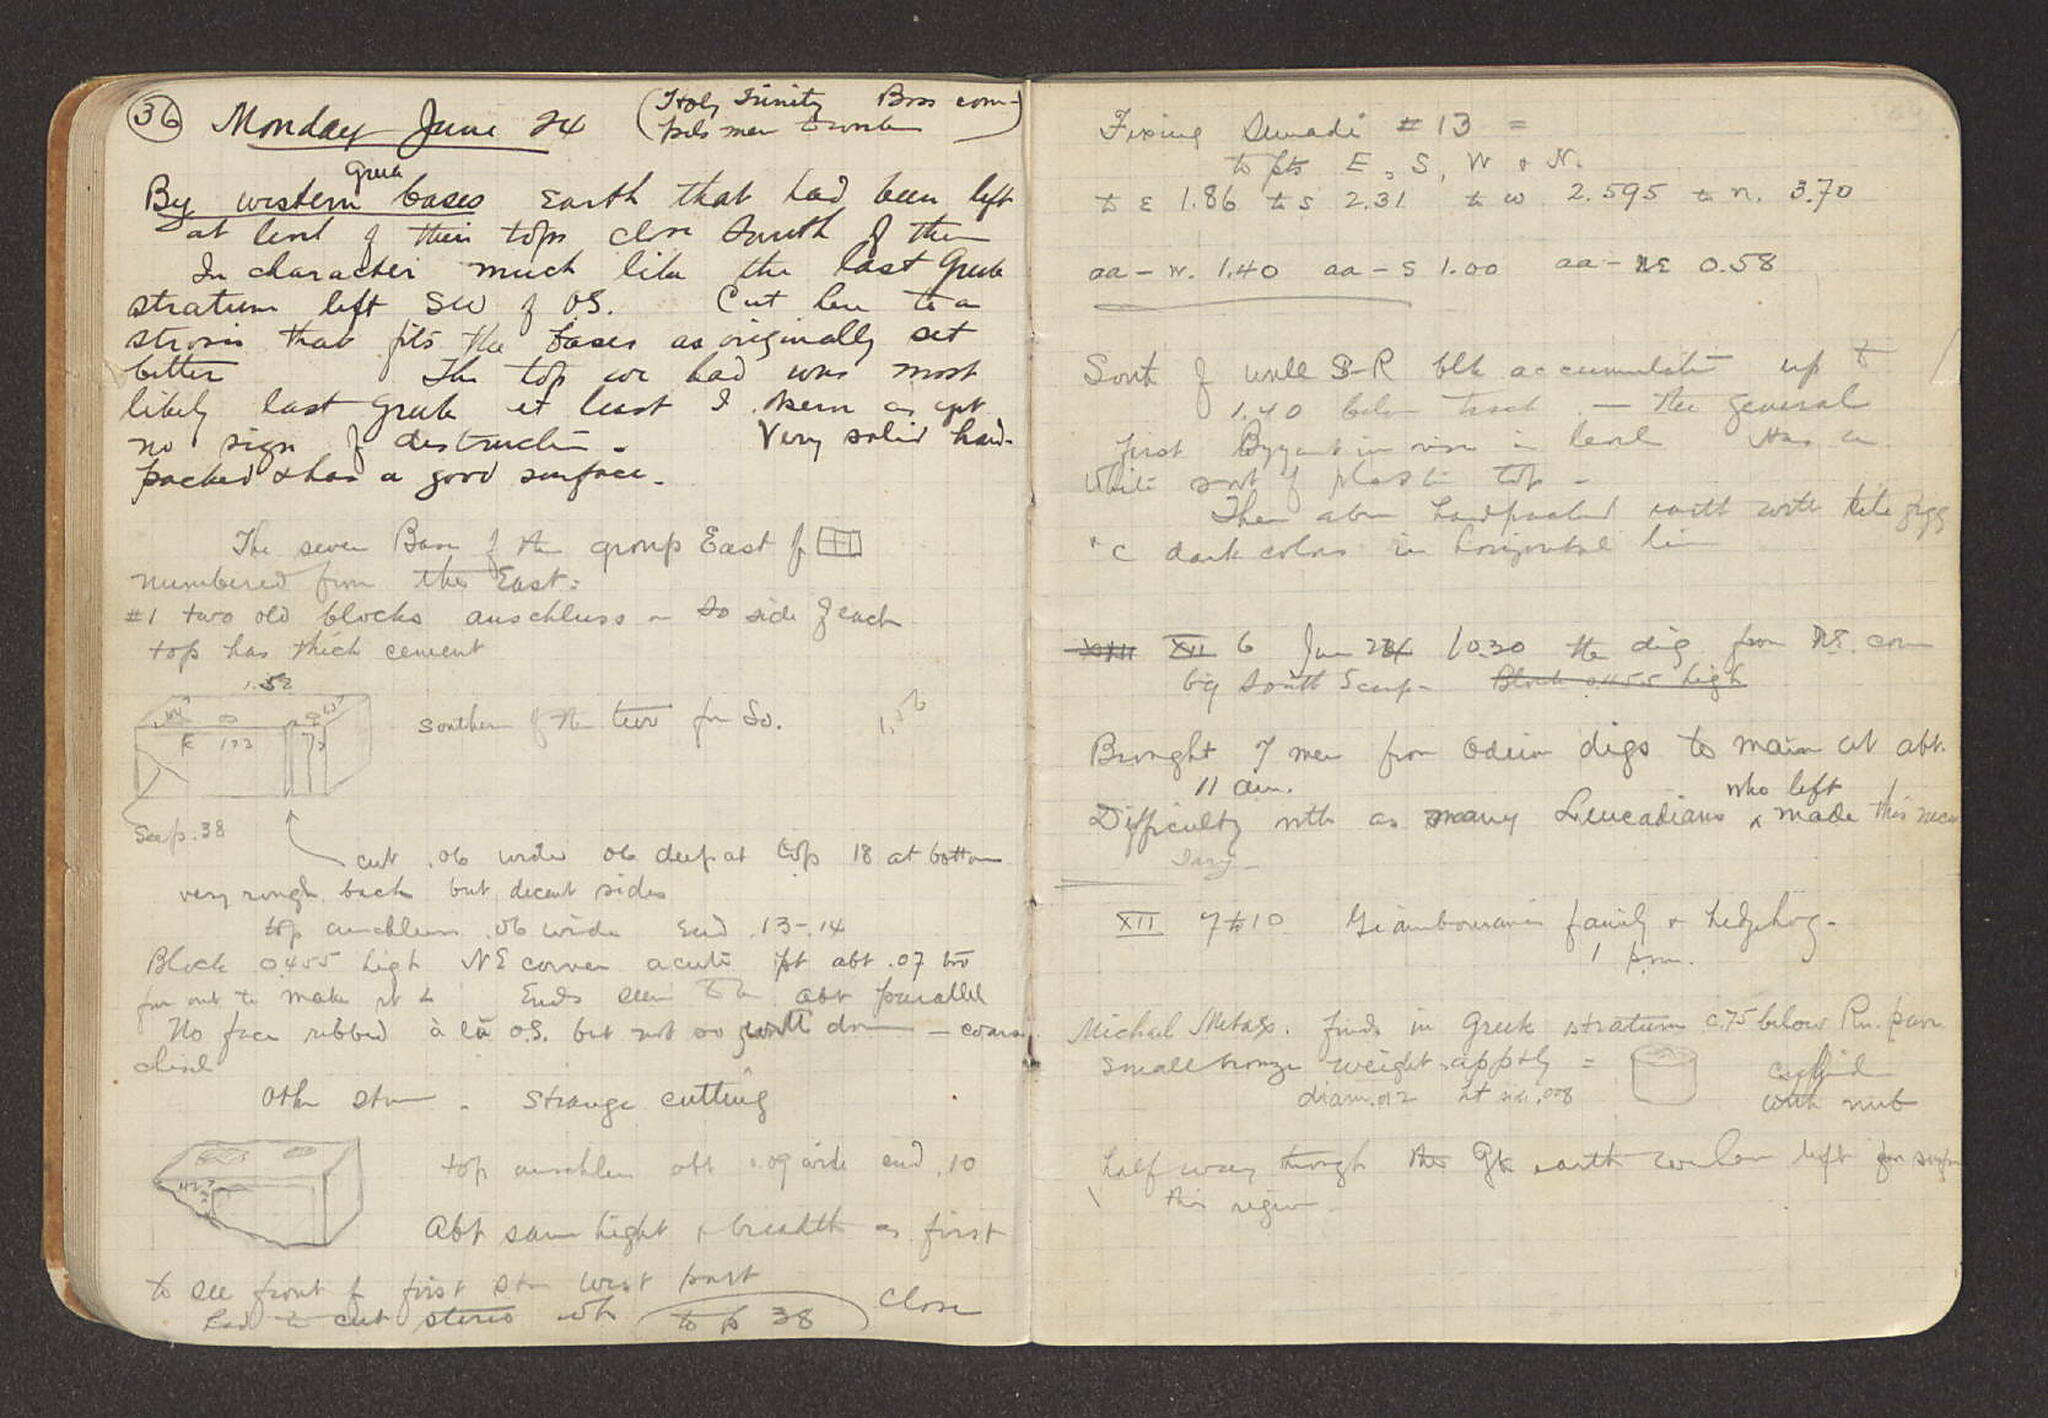 36 Monday June 24 (Holy Trinity Boss com-
pels men to work)
Greek
By western bases Earth that had been left
at level of their tops close South of them
In character much like the last Greek
stratum left SW of OS. Cut here to a
strosis that fits the bases as originally set
better The top we had was most
likely last Greek at least I
no sign of destruction. Very solid hard-
packed & has a good surface.
The seven Bases of the group East of
numbered from the East:
#1 two old blocks anschluss on So side of each
top has thick cement
1.52
souther of the two from So. 1.56
See p. 38
cut .06 wide 06 deep at top 18 at bottom
very rough back but decent sides
top anschluss .06 wide end .13-.14
Block 0.455 high NE corner acute pt abt .07 too
far out to make rt L Ends seem to be abt parallel
No face ribbed à la O.S. but not so well done — coarse
chisel
Other stone - strange cutting
top anschluss abt .09 wide end .10
Abt same hight & breadth as first
to see front of first stone west part
had to cut stereo wh (to p 38) close
Fixing Dunadi #13 =
to pts E, S, W & N.
to E 1.86 to S 2.31 to W 2.595 to N. 3.70
aa - W. 1.40 aa - S 1.00 aa - NE 0.58
South of wall S-R blk accumulation up to
1.40 below track - the general
first Byzantine rise in level Has a
white sort of plaster top -
Then above hardpacked earth with tile frgg
& c dark colors in horizontal line
XII 6 June 24 10.30 the dig from NE corn
big South Scarp - Block 0.455 high
Brought 7 men from Odeion digs to main cut abt.
11 am.
who left
Difficulty with as many Leucadians made this neces
sary -
XII 7 to 10 Giambouranis family & hedgehog -
1 p.m.
Michael Metaxas. finds in Greek stratum c.75 below Rn. pave
small bronze weight apptly = cylind
diam .012 ht .008 with nub
half way through the Gk earth we have left for
this region -